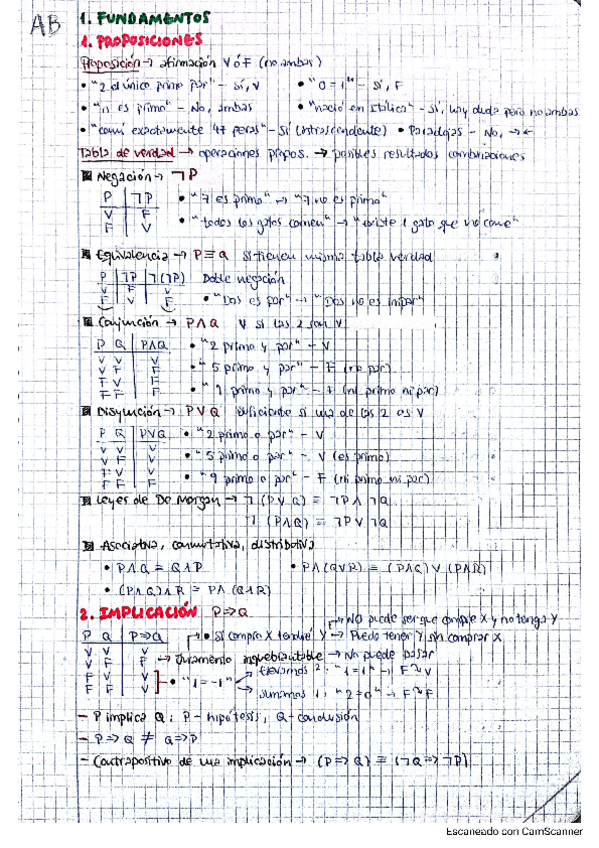 AB
1. FUNDAMENTOS
1. PROPOSICIONES
Proposición → afirmación V ó F (no ambas)
• "2 el único primo par" - Sí, V • "0 = 1" - Sí, F
• "n es primo" - No, ambas • "nació en - Sí, hay duda pero no ambas
• "comí exactamente 47 peras" - Sí (intrascendente) • Paradojas - No, →←
Tabla de verdad → operaciones propos. → posibles resultados combinaciones
Negación → ¬P
P ¬P • "7 es primo" → "7 no es primo"
V F • "todos los gatos comen" → "existe 1 gato que no come"
F V
Equivalencia → P ≡ Q si tienen misma tabla verdad
P ¬P ¬(¬P) Doble negación
V F V • "Dos es par" → "Dos no es impar"
F V F
Conjunción → P∧Q V si las 2 son V
P Q P∧Q • "2 primo y par" - V
V V V • "5 primo y par" - F (no par)
V F F • "9 primo y par" - F (ni primo ni par)
F V F
F F F
Disyunción → P∨Q suficiente si una de las 2 es V
P Q P∨Q • "2 primo o par" - V
V V V • "5 primo o par" - V (es primo)
V F V • "9 primo o par" - F (ni primo ni par)
F V V
F F F
Leyes de De Morgan → ¬(P∨Q) ≡ ¬P∧¬Q
¬(P∧Q) ≡ ¬P∨¬Q
Asociativa, conmutativa, distributiva
• P∧Q = Q∧P • P∧(Q∨R) = (P∧Q)∨(P∧R)
• (P∧Q)∧R = P∧(Q∧R)
2. IMPLICACIÓN P⇒Q
→ No puede ser que compre X y no tenga Y
P Q P⇒Q → • Si compro X tendré Y → Puedo tener Y sin comprar X
V V V → Juramento inquebrantable → No puede pasar
V F F
F V V • "1 = -1" → Elevamos 2: "1=1" → F⇒V
F F V → Sumamos 1: "2=0" → F⇒F
- P implica Q: P - hipótesis, Q - conclusión
- P⇒Q ≠ Q⇒P
- Contrapositivo de una implicación → (P⇒Q) ≡ (¬Q⇒¬P)
Escaneado con CamScanner